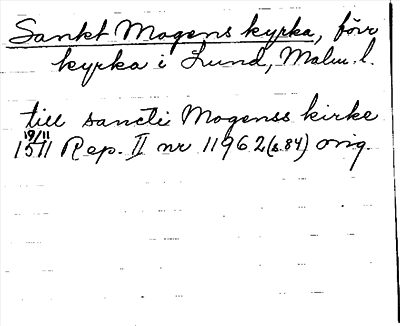 Sankt Mogens kyrka, förr
kyrka i Lund, Malm. l.
till sancti Mogenss kirke
19/11
1511 Rep. II nr 11962 (s. 84) orig.